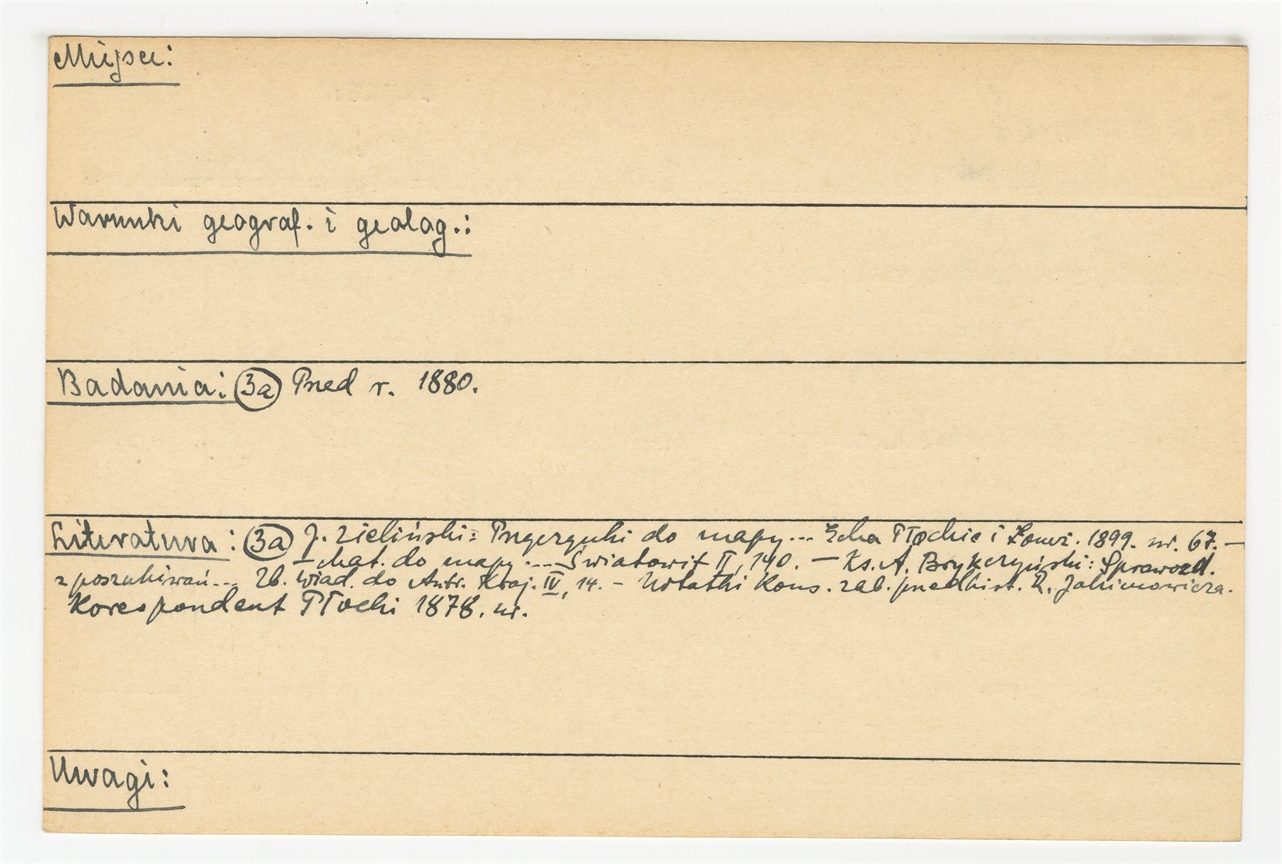 Miejsce:
Warunki geograf. i geolog.:
Badania: 3a Przed r. 1880.
Literatura: 3a J. Zieliński: Przyczynki do mapy... Echa Płockie i Łomż. 1899. nr. 67. —
— Mat. do mapy ... Światowit II, 190. — Ks. A. Brykczyński: Sprawozd.
z poszukiwań... Zb. wiad. do Antr. Kraj. IV, 14. — Notatki Kons. zab. przedhist. R. Jakimowicza.
Korespondent Płocki 1878. nr.
Uwagi: